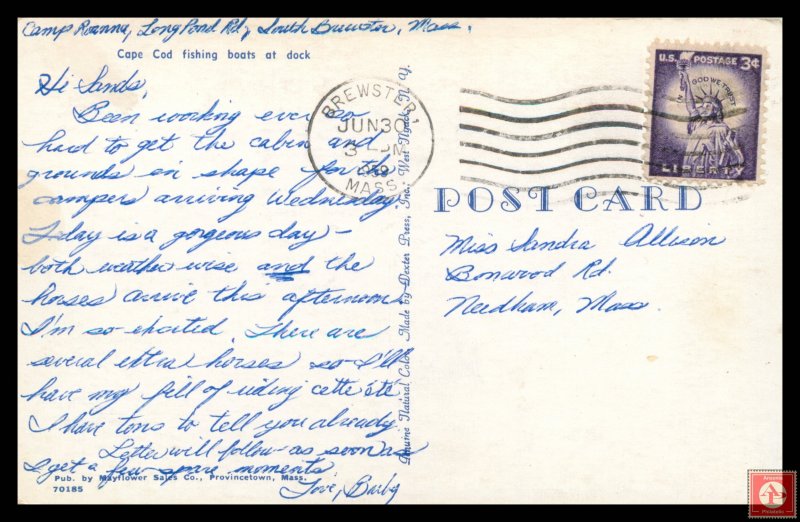 Camp Roanna, Long Pond Rd, South Brewster, Mass.
Cape Cod fishing boats at dock
Hi Sands,
Been working ever so
hard to get the cabin and
grounds in shape for the
campers arriving Wednesday.
Today is a gorgeous day -
both weather wise and the
horses arrive this afternoon.
I'm so excited. There are
several extra horses so I'll
have my fill of riding cette été.
I have tons to tell you already.
Letter will follow - as soon as
I get a few spare moments.
Love, Barby
Pub. by Mayflower Sales Co., Provincetown, Mass.
70185
Genuine Natural Color Made by Dexter Press, Inc., West Nyack, N. Y.
BREWSTER
JUN 30
PM
MASS.
U.S. POSTAGE 3¢
IN GOD WE TRUST
LIBERTY
POST CARD
Miss Sandra Allison
Bonwood Rd.
Needham, Mass.